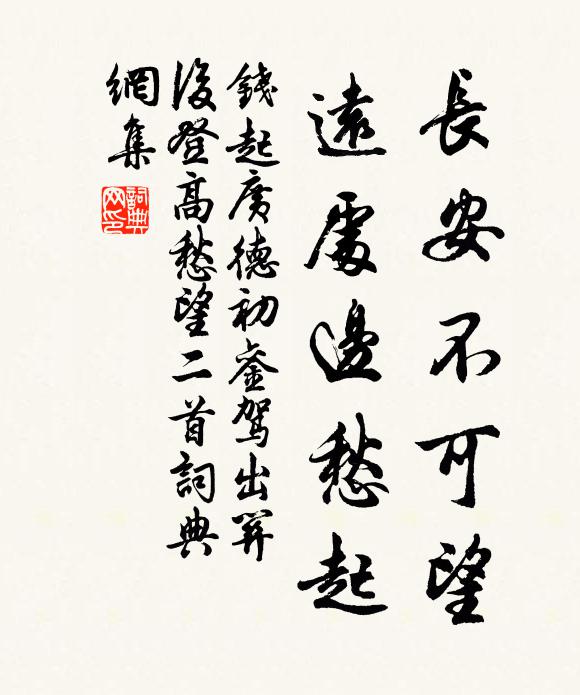 長安不可望
遠處邊愁起
錢起廣德初鑾駕出關
後登高愁望二首詞典
網集
詞典
网印